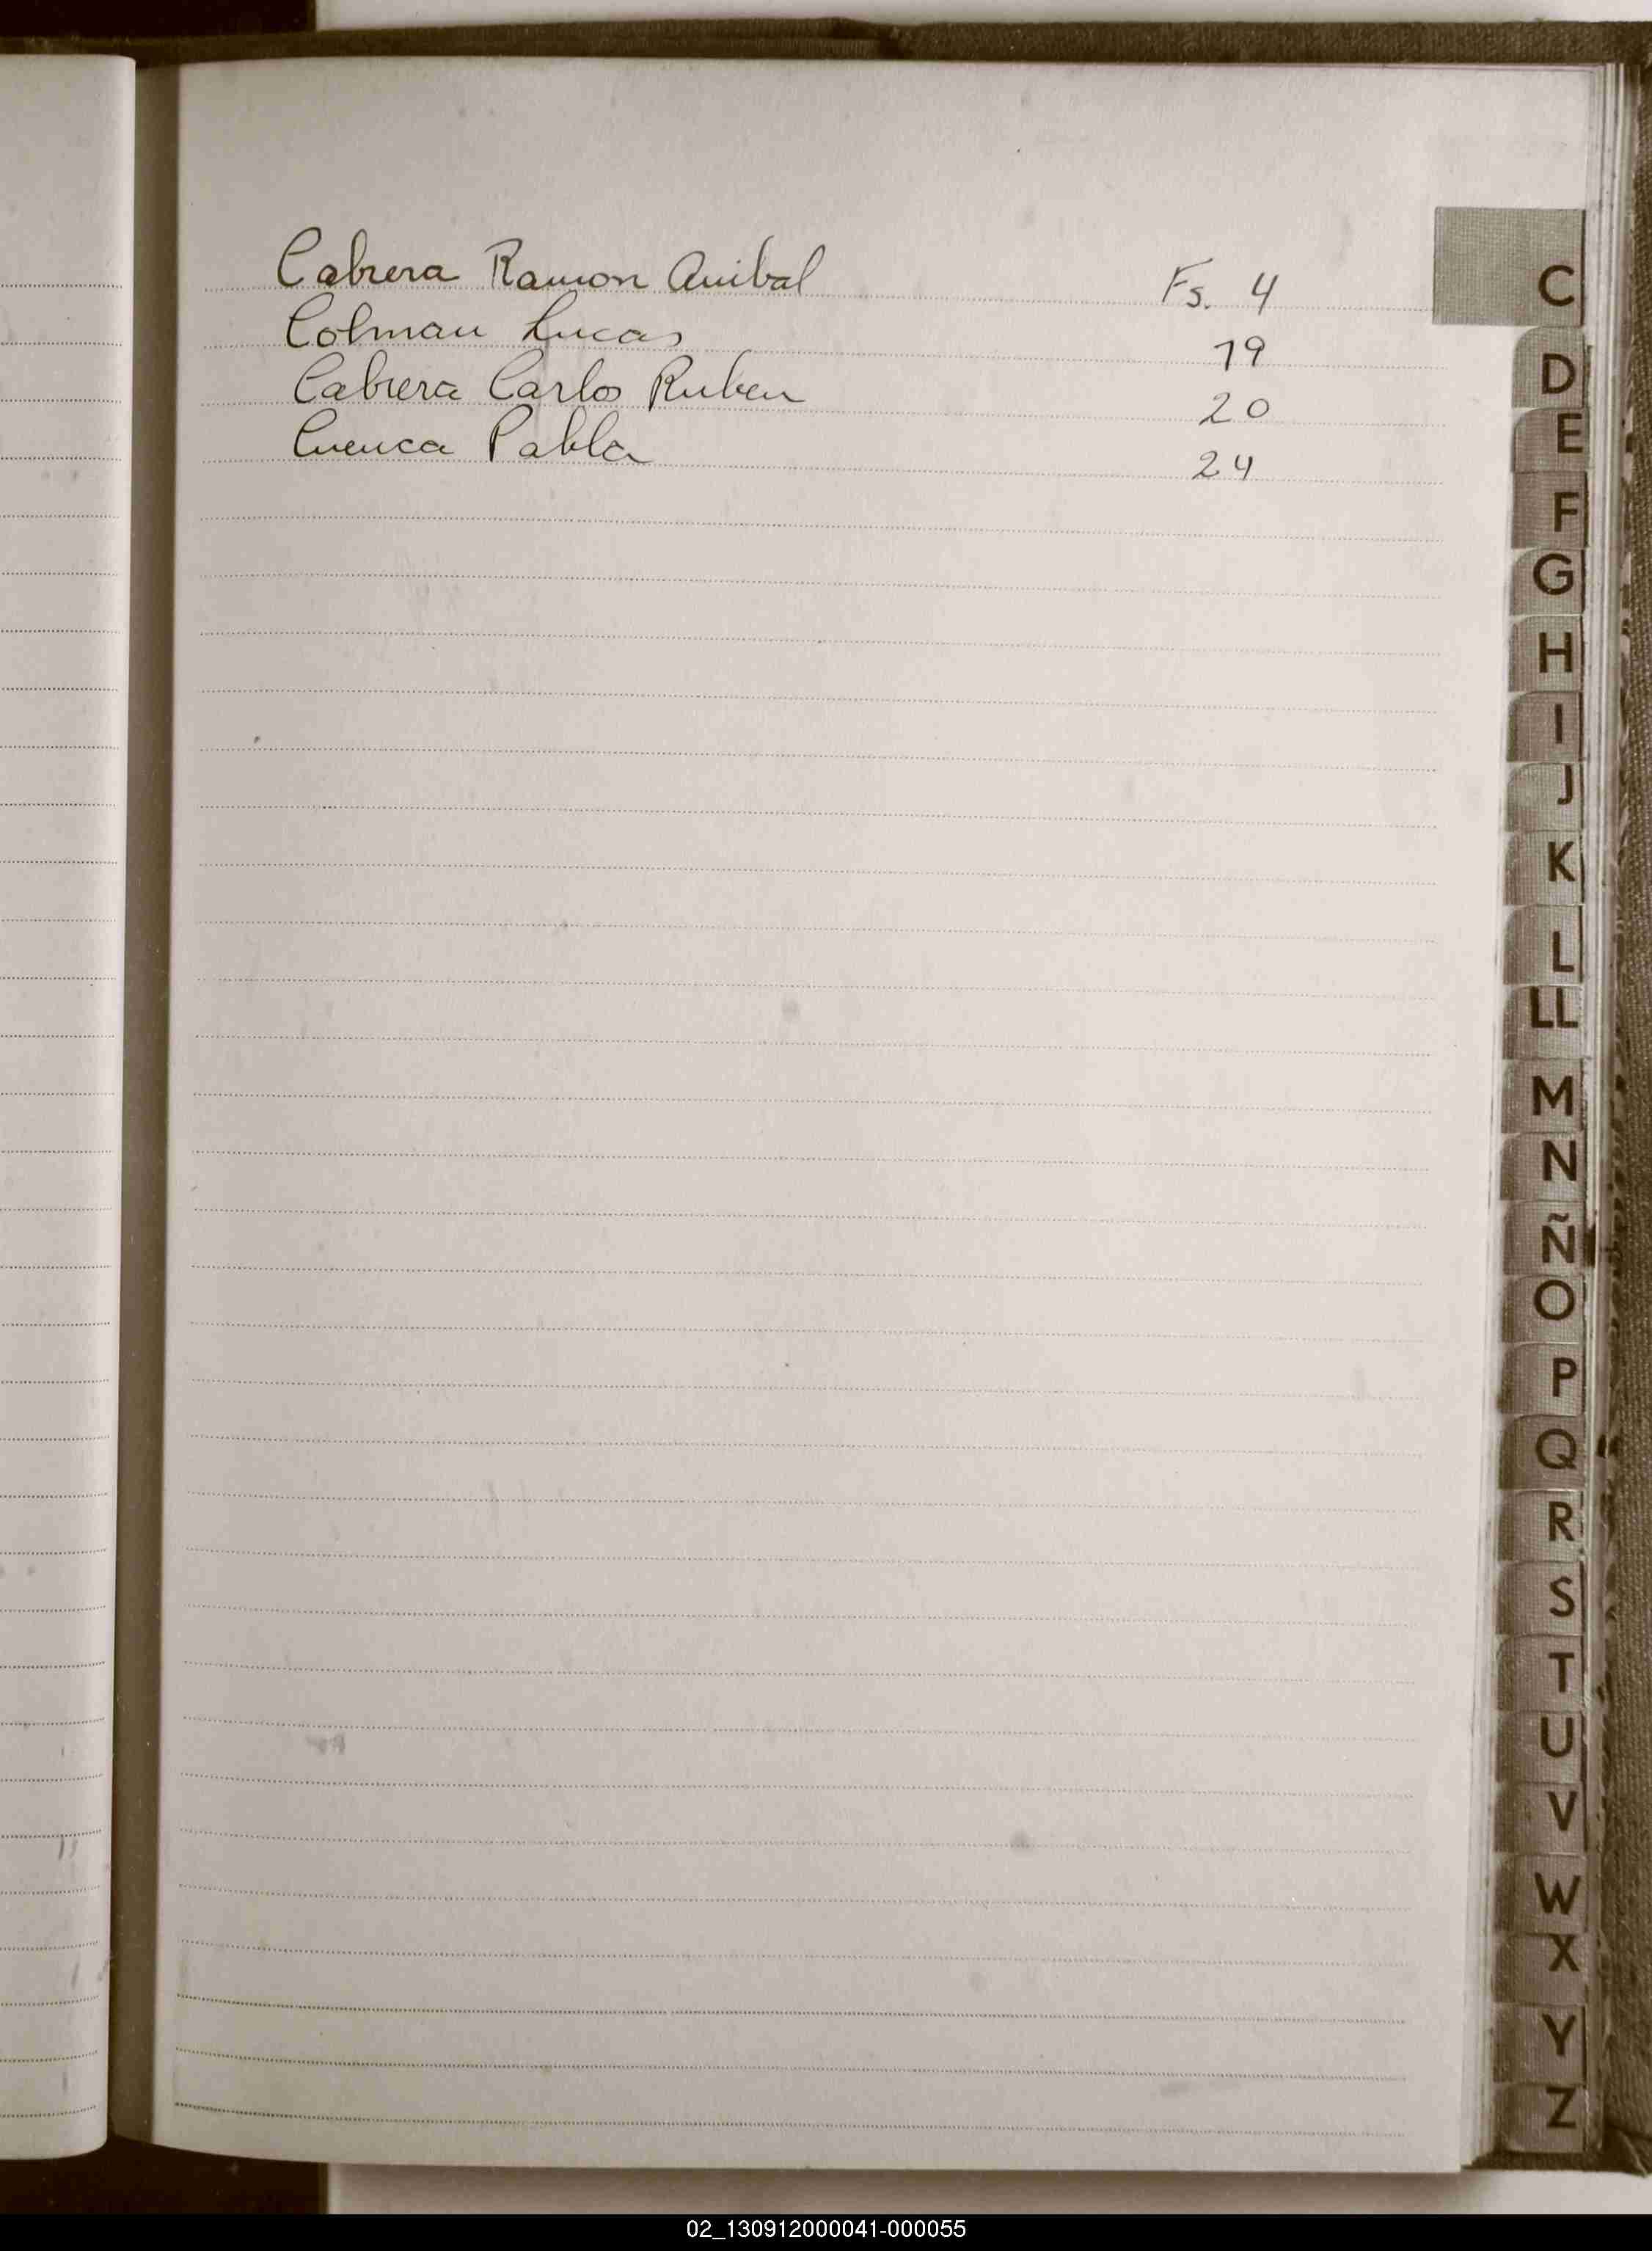 Cabrera Ramon Anibal Fs. 4
Colman Lucas 19
Cabrera Carlos Ruben 20
Cuenca Pabla 24
C
D
E
F
G
H
I
J
K
L
LL
M
N
Ñ
O
P
Q
R
S
T
U
V
W
X
Y
Z
02_130912000041-000055